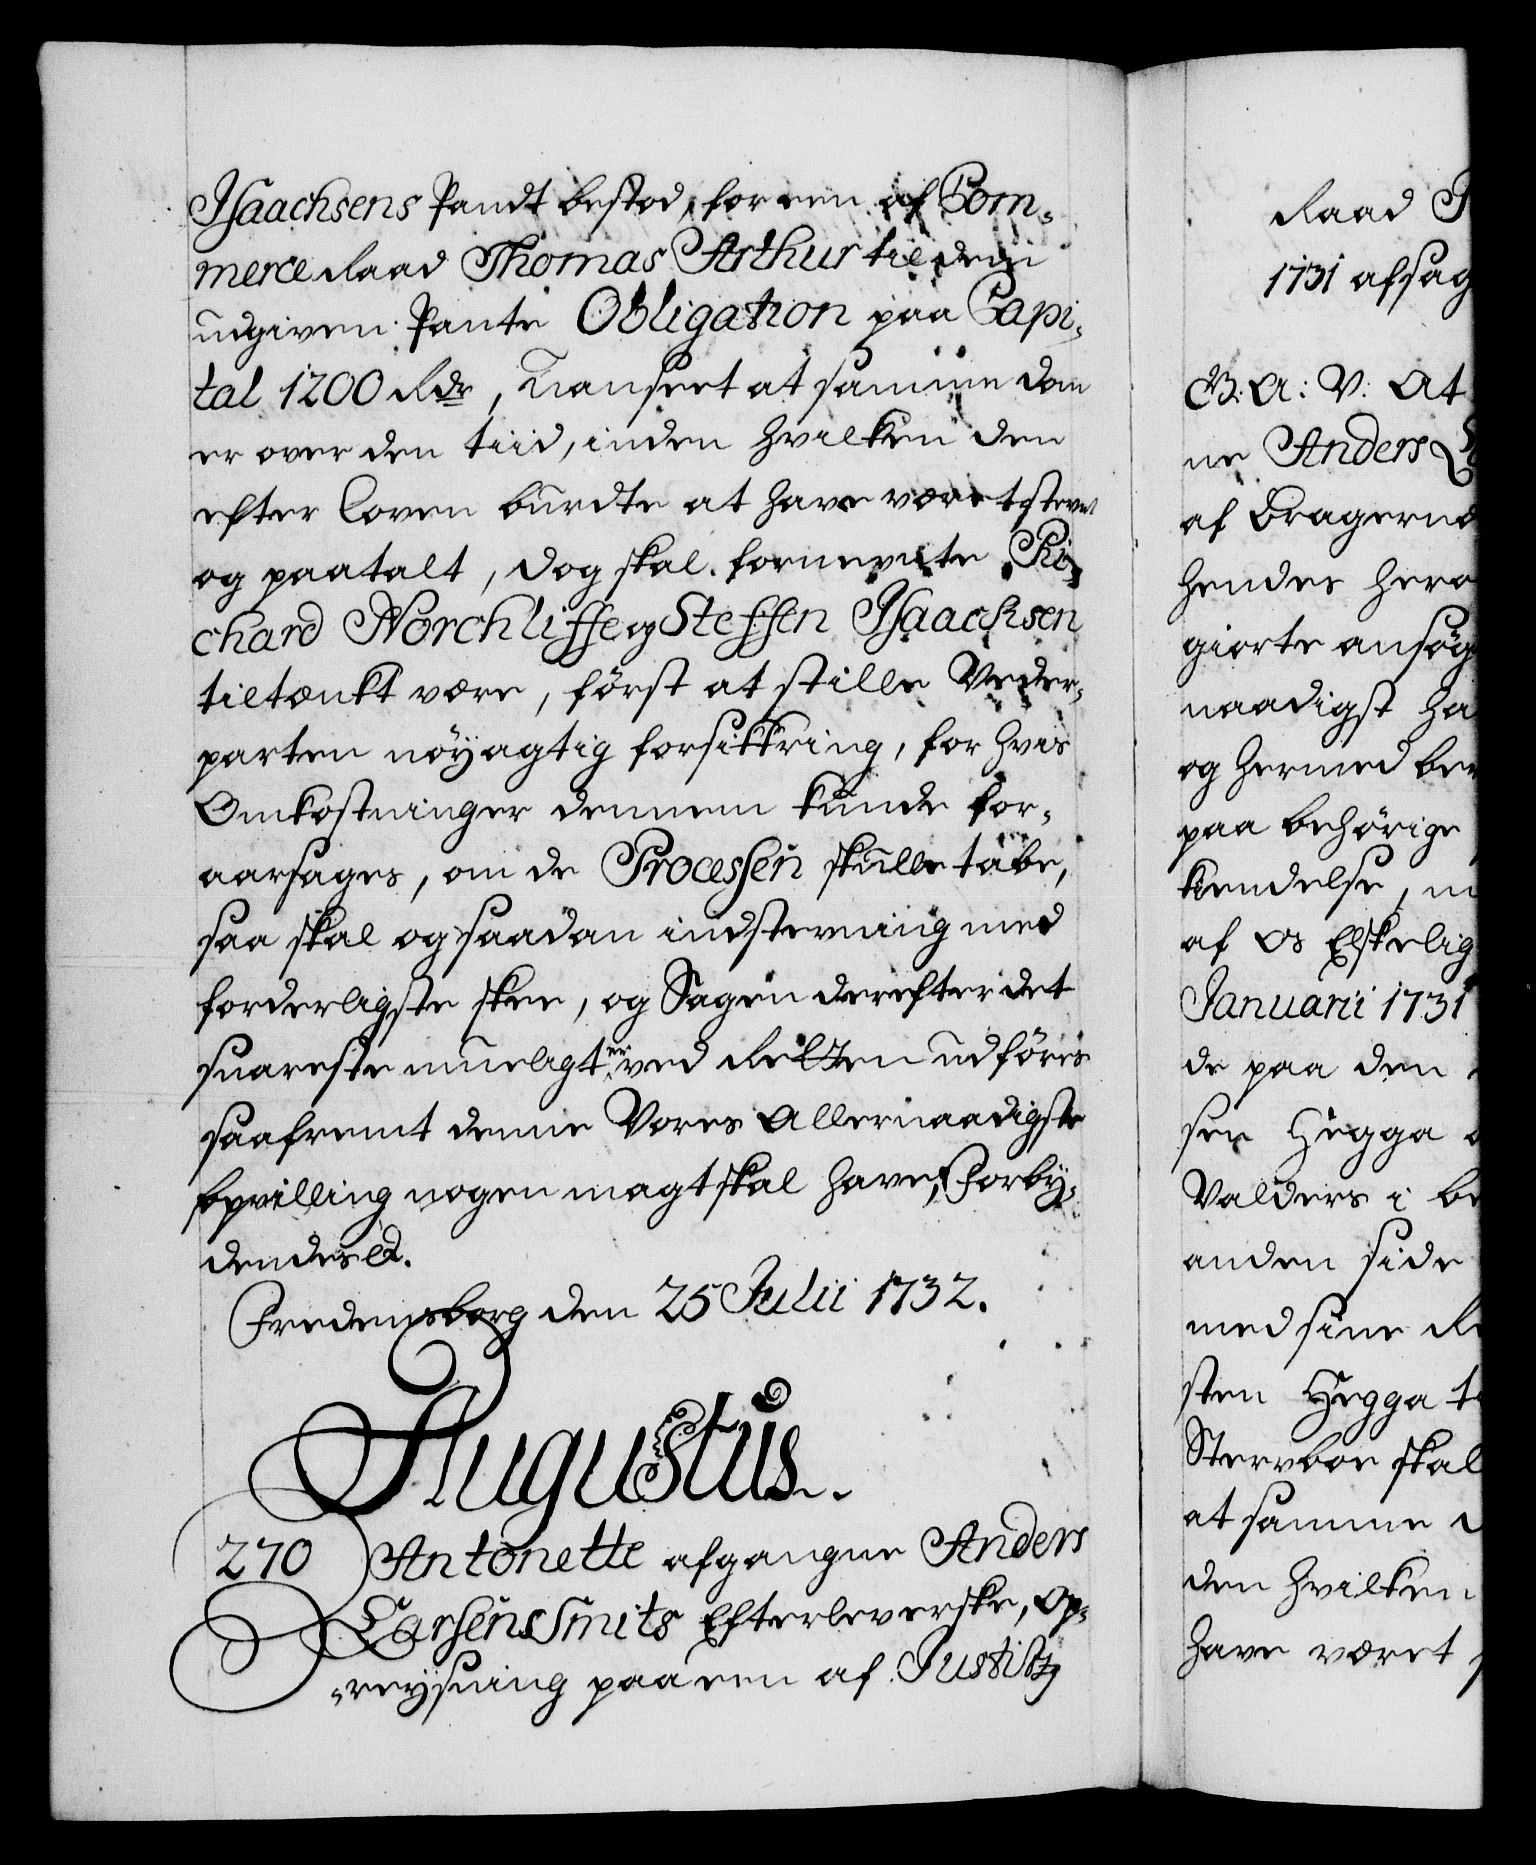 Isaachsens Pandt bestod, for een af Com-
merce Raad Thomas Arthur til dem
udgiven Pante Obligation paa Capi-
tal 1200 Rdr, Uanseet at samme dom
er over den tiid, inden hvilken den
efter Loven burdte at have været stevnt
og paatalt, dog skal fornevnte Ri-
chard Norchliffe og Steffen Isaachsen
tiltænkt være, først at stille Veder-
parten nøyagtig forsikkring, for hvis
Omkostninger dennem kunde for-
aarsages, om de Processen skulle tabe,
saa skal og saadan indstevning med
forderligste skee, og Sagen derefter det
snareste mueligt er ved Retten udføres
saafremt denne Vores Allernaadigste
bevilling nogen magt skal have, Forby-
dendes &.
Fredensborg den 25 Julii 1732.
Augustus.
270 Antonette afgangne Anders
Larsens Smits Efterleverske, Op-
reysning paa een af Justitz
Raad
1731 afsag
G: A: V: At
ne Anders
af Bragernæ
hendes hero
giorte ansøg
naadigst ha
og hermed be
paa behørige
kiendelse,
af os Elskelig
Januarii 1731
de paa den
sen Hegga
Valders i be
anden side
med sine
sten Hegga
Stervboe skal
at samme
den hvilken
have været